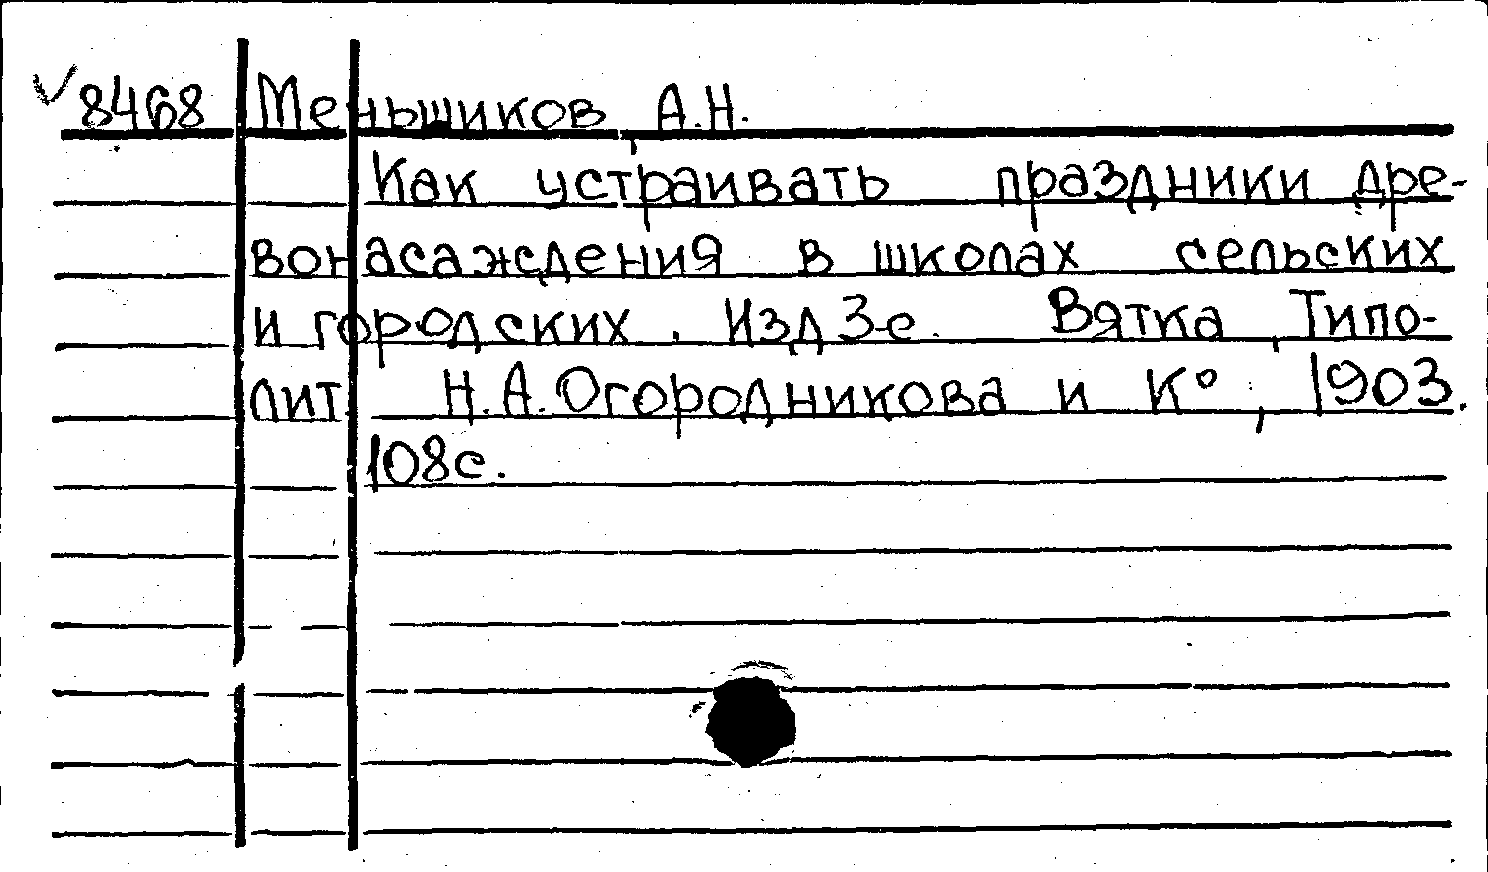 8468 Меньшиков, А.Н.
Как устраивать праздники дре-
вонасаждения в школах сельских
и городских. Изд 3-е. Вятка, Типо-
лит. Н.А.Огородникова и К°, 1903.
108с.